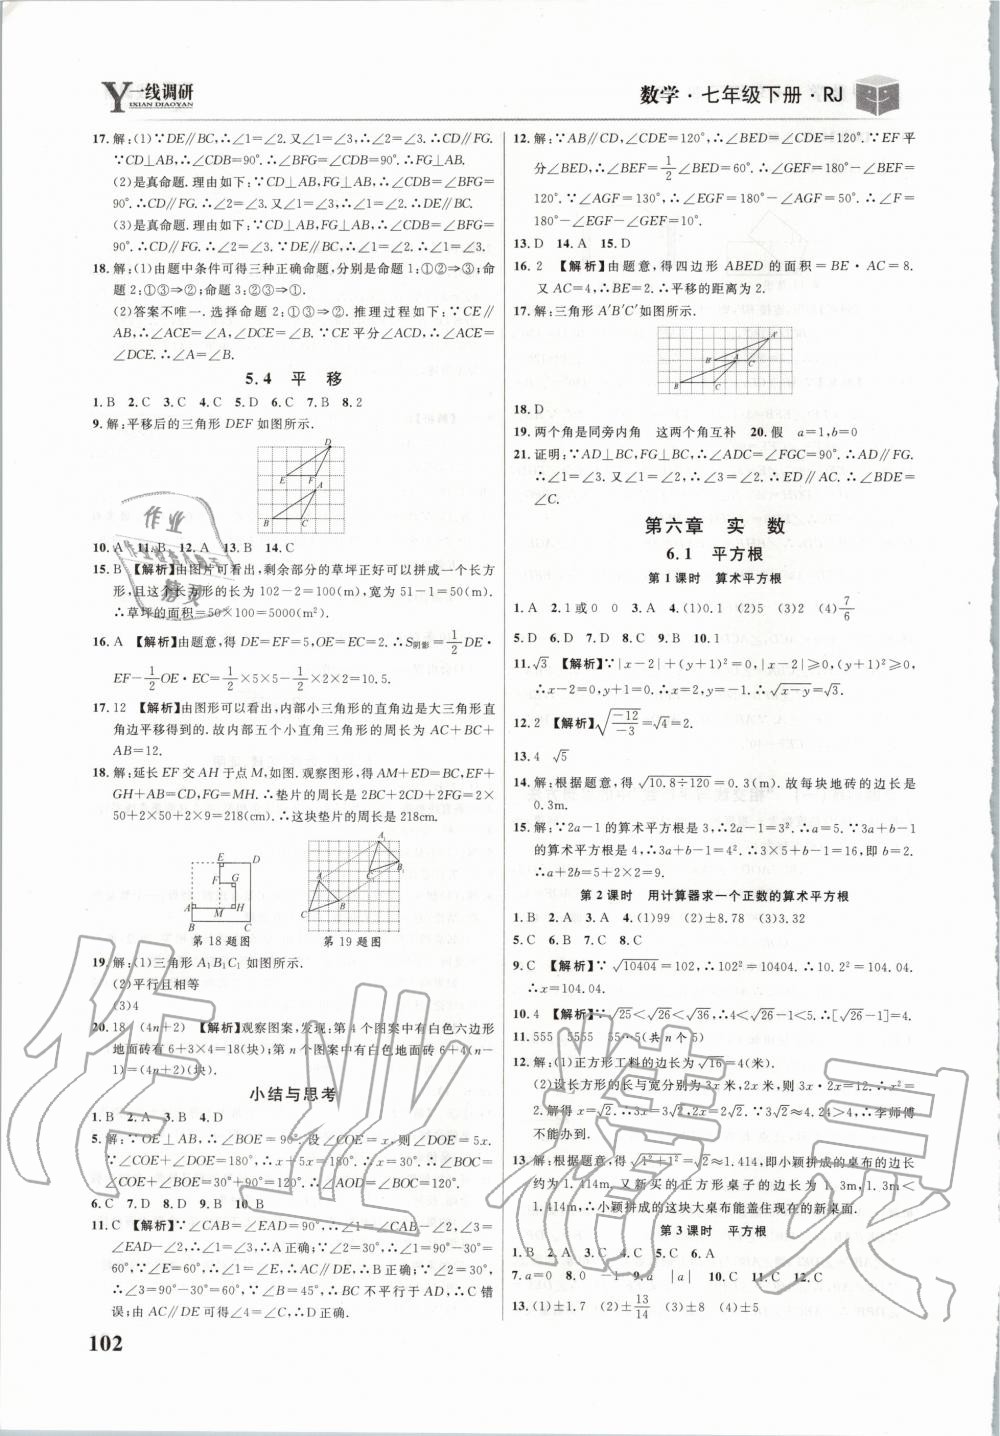 Y一线调研
YIXIAN DIAOYAN
数学·七年级下册·RJ
17.解:(1)∵DE∥BC,∴∠1=∠2.又∠1=∠3,∴∠2=∠3.∴CD∥FG.
∵CD⊥AB,∴∠CDB=90°.∴∠BFG=∠CDB=90°.∴FG⊥AB.
(2)是真命题.理由如下:∵CD⊥AB,FG⊥AB,∴∠CDB=∠BFG=
90°.∴CD∥FG.∴∠2=∠3.又∠1=∠3,∴∠1=∠2.∴DE∥BC.
(3)是真命题.理由如下:∵CD⊥AB,FG⊥AB,∴∠CDB=∠BFG=
90°.∴CD∥FG.∴∠2=∠3.∵DE∥BC,∴∠1=∠2.∴∠1=∠3.
18.解:(1)由题中条件可得三种正确命题,分别是命题1:①②⇒③;命
题2:①③⇒②;命题3:②③⇒①.
(2)答案不唯一.选择命题2:①③⇒②.推理过程如下:∵CE∥
AB,∴∠ACE=∠A,∠DCE=∠B.∵CE平分∠ACD,∴∠ACE=
∠DCE.∴∠A=∠B.
5.4 平 移
1.B 2.C 3.C 4.C 5.D 6.C 7.B 8.2
9.解:平移后的三角形DEF如图所示.
D
E F
A
B C
10.A 11.B 12.A 13.B 14.C
15.B 【解析】由图片可看出,剩余部分的草坪正好可以拼成一个长方
形,且这个长方形的长为102-2=100(m),宽为51-1=50(m).
∴草坪的面积=50×100=5000(m²).
16.A 【解析】由题意,得DE=EF=5,OE=EC=2.∴S阴影=1/2 DE·
EF-1/2 OE·EC=1/2×5×5-1/2×2×2=10.5.
17.12 【解析】由图形可以看出,内部小三角形的直角边是大三角形直
角边平移得到的.故内部五个小直角三角形的周长为AC+BC+
AB=12.
18.解:延长EF交AH于点M,如图.观察图形,得AM+ED=BC,EF+
GH+AB=CD,FG=MH.∴垫片的周长是2BC+2CD+2FG=2×
50+2×50+2×9=218(cm).∴这块垫片的周长是218cm.
E D
F G
A M H
B C
第18题图
A₁
C₁ B₁
A
C B
第19题图
19.解:(1)三角形A₁B₁C₁如图所示.
(2)平行且相等
(3)4
20.18 (4n+2) 【解析】观察图案,发现:第4个图案中有白色六边形
地面砖有6+3×4=18(块);第n个图案中有白色地面砖6+4(n-
1)=(4n+2)(块).
小结与思考
1.B 2.A 3.B 4.D
5.解:∵OE⊥AB,∴∠BOE=90°.设∠COE=x,则∠DOE=5x.
∵∠COE+∠DOE=180°,∴x+5x=180°.∴x=30°.∴∠BOC=
∠COE+∠BOE=30°+90°=120°.∴∠AOD=∠BOC=120°.
6.C 7.D 8.D 9.B 10.B
11.C 【解析】∵∠CAB=∠EAD=90°,∴∠1=∠CAB-∠2,∠3=
∠EAD-∠2,∴∠1=∠3,∴A正确;∵∠2=30°,∴∠1=90°-30°=
60°,∵∠E=60°,∴∠1=∠E,∴AC∥DE,∴B正确;∵∠2=45°,
∴∠3=45°,∵∠B=45°,∴∠3=∠B,∴BC不平行于AD,∴C错
误;由AC∥DE可得∠4=∠C,∴D正确.
102
12.解:∵AB∥CD,∠CDE=120°,∴∠BED=∠CDE=120°.∵EF平
分∠BED,∴∠BEF=1/2∠BED=60°.∴∠GEF=180°-∠BEF=
120°.∵∠AGF=130°,∴∠EGF=180°-∠AGF=50°.∴∠F=
180°-∠EGF-∠GEF=10°.
13.D 14.A 15.D
16.2 【解析】由题意,得四边形ABED的面积=BE·AC=8.
又AC=4,∴BE=2.∴平移的距离为2.
17.解:三角形A′B′C′如图所示.
A′
B′ A C′
B C
18.D
19.两个角是同旁内角 这两个角互补 20.假 a=1,b=0
21.证明:∵AD⊥BC,FG⊥BC,∴∠ADC=∠FGC=90°.∴AD∥FG.
∴∠1=∠3.又∠1=∠2,∴∠2=∠3.∴ED∥AC.∴∠BDE=
∠C.
第六章 实 数
6.1 平方根
第1课时 算术平方根
1.A 2.1或0 0 3.A 4.(1)0.1 (2)5 (3)2 (4)7/6
5.D 6.D 7.D 8.C 9.B 10.1
11.√3 【解析】∵|x-2|+(y+1)²=0,|x-2|≥0,(y+1)²≥0,
∴x-2=0,y+1=0.∴x=2,y=-1.∴√(x-y)=√3.
12.2 【解析】√(-12/-3)=√4=2.
13.4 √5
14.解:根据题意,得√(10.8÷120)=0.3(m).故每块地砖的边长是
0.3m.
15.解:∵2a-1的算术平方根是3,∴2a-1=3².∴a=5.∵3a+b-1
的算术平方根是4,∴3a+b-1=4².∴3×5+b-1=16,即b=2.
∴a+2b=5+2×2=9.
第2课时 用计算器求一个正数的算术平方根
1.B 2.A 3.A 4.(1)99 (2)±8.78 (3)3.32
5.C 6.B 7.C 8.C
9.C 【解析】∵√10404=102,∴102²=10404,∴10.2²=104.04.
∴x=104.04.
10.4 【解析】∵√25<√26<√36,∴4<√26-1<5.∴[√26-1]=4.
11.555 5555 55…5(共n个5)
12.解:(1)正方形工料的边长为√16=4(米).
(2)设长方形的长与宽分别为3x米,2x米,则3x·2x=12.∴x²=
2.解得x=√2.∴3x=3√2,2x=2√2.∵3√2≈4.24>4,∴李师傅
不能办到.
13.解:根据题意,得√(1²+1²)=√2≈1.414,即小颖拼成的桌布的边长
约为1.414m,又新买的正方形桌子的边长为1.3m,1.3m<
1.414m,∴小颖拼成的这块大桌布能盖住现在的新桌面.
第3课时 平方根
1.B 2.A 3.C 4.C 5.C 6.A
7.a=0 8.0 -1 9.a |a| 10.C 11.C 12.C
13.(1)±1.7 (2)±13/14 (3)±8 (4)±5
作业精灵